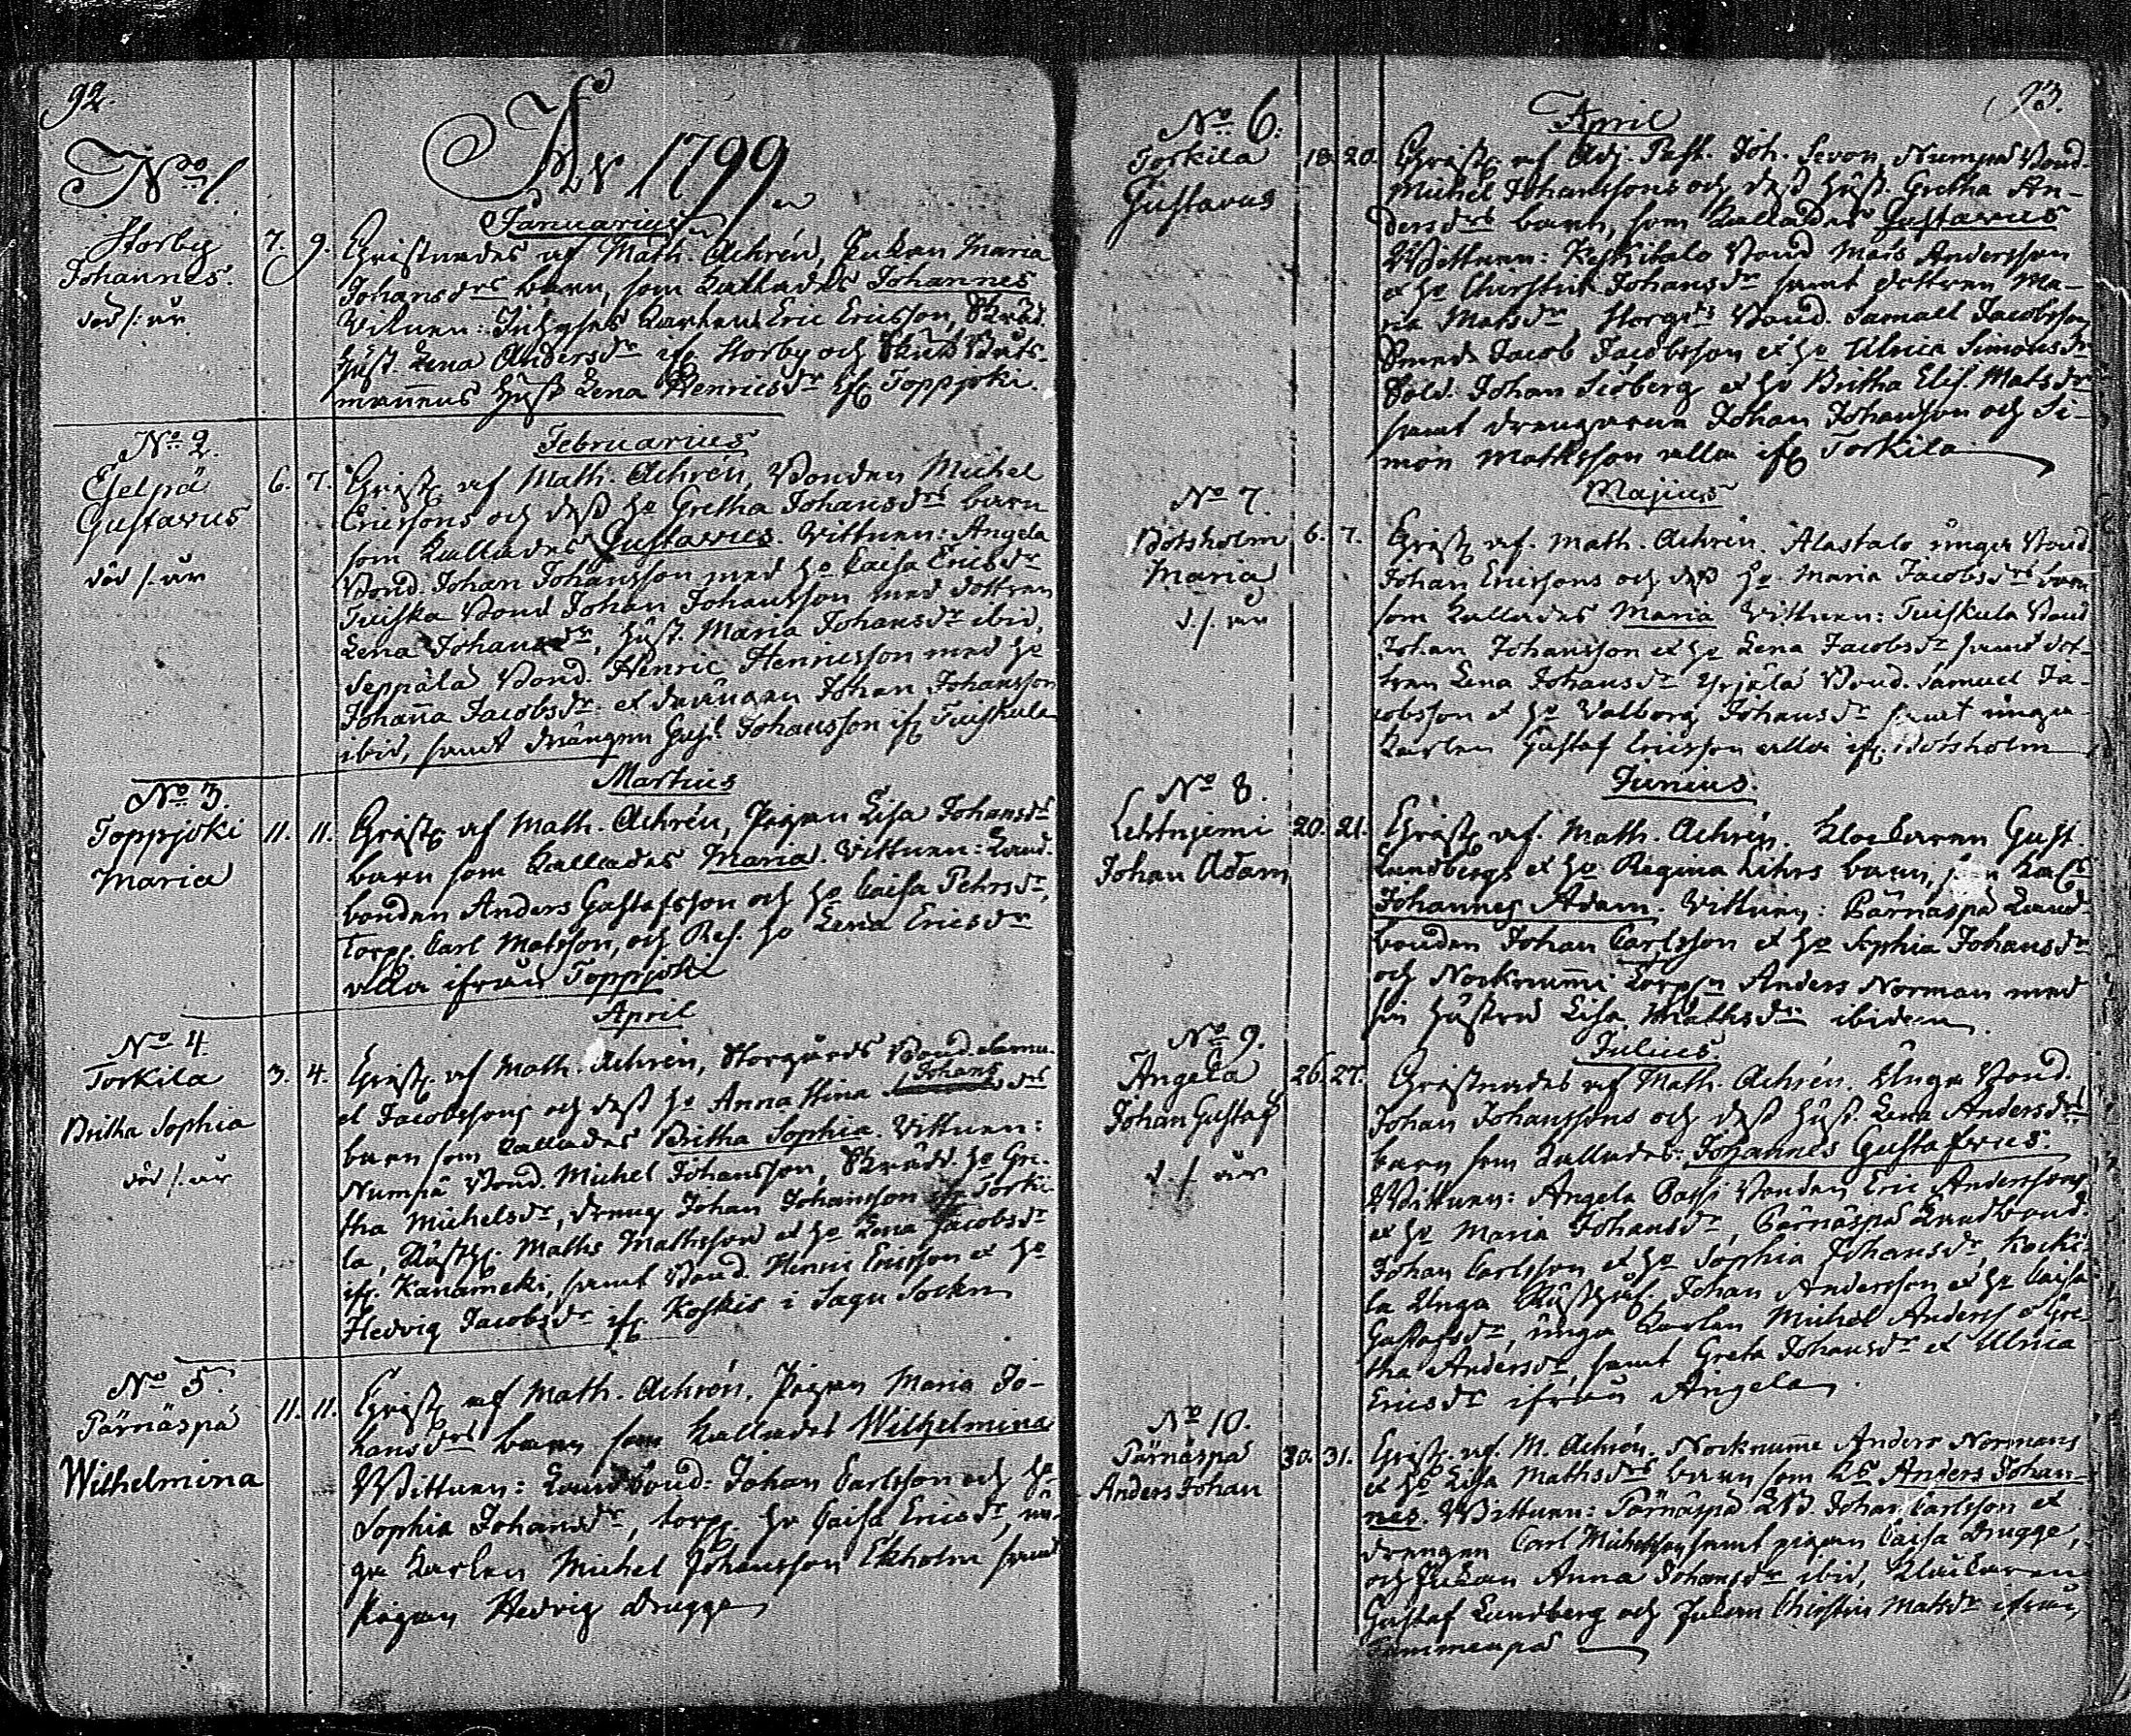 92.
Åhr 1799
No 1.
Januarius
Storby
Johannes.
död /: år
7. 9.
Christnades af Math. Achrén, Pigan Maria
Johansdrs barn, som kallades Johannes
Vitnen: Karlen Eric Ericsson,
Hust. Lena Andersdr ifr. Storby och
mannens Hust Lena Henricsdr ifr Toppjoki.
No 2.
Februarius
Eselpä
Gustavus
död /: år
6. 7.
Christ. af Math. Achrén, Bonden Michel
Ericssons och dess ho Gretha Johansdrs barn
som kallades Gustavus. Vittnen: Angela
Bond. Johan Johansson med ho Caisa Ericsdr
Tuiska Bond Johan Johansson med dottren
Lena Johansdr, Hust. Maria Johansdr ibid,
Seppälä Bond. Henric Henricsson med ho
Johanna Jacobsdr. et drängen Johan Johansson
ibid, samt drängen Gust. Johansson ifr Tuiskula
No 3.
Martius
Toppjoki
Maria
11. 11.
Christ af Math. Achrén, Pigan Lisa Johansdrs
barn som kallades Maria. Vittnen: Land-
bonden Anders Gustafsson och ho Caisa Pehrsdr,
Torpp. Carl Matsson, och Res. ho Lena Ericsdr
alla ifrån Toppjoki
No 4.
April
Torkila
Britha Sophia
död /: år
3. 4.
Christ. af Math. Achrén, Storgårds Bond. Samu-
el Jacobssons och dess ho Anna Stina Johans drs
barn som kallades Britha Sophia. Vittnen:
Numpä Bond. Michel Johansson, Skrädd. ho Gre-
tha Michelsdr, dreng Johan Johansson ifr Torki-
la, Rusth. Maths Mathsson et ho Lena Jacobsdr
ifr. Kanamäki, samt Bond. Henric Ericsson et ho
Hedvig Jacobsdr ifr. Koskis i Sagu Sockn
No 5.
Pärnäspä
Wilhelmina
11. 11.
Christ af Math. Achrén, Pigan Maria Jo-
hansdrs barn som kallades Wilhelmina
Wittnen: Landbond: Johan Carlsson och ho
Sophia Johansdr, torpp. ho Caisa Ericsdr, un-
ga Karlen Michel Johansson Ekholm samt
Pigan Hedvig Drugge
93.
No 6.
April
Torkila
Gustavus
18. 20.
Christ. af Adj. Past. Joh. Sevon, Numpä Bond.
Michel Johanssons och dess hust. Gretha An-
dersdrs barn, som kallades Gustavus
Wittnen: Keskitalo Bond Mats Andersson
et ho Christin Johansdr samt dottren Ma-
ria Matsdr, Storgds Bond. Samuel Jacobsson
Smed Jacob Jacobsson et ho Ulrica Simonsdr
Sold. Johan Siöberg et ho Britha Elis. Matsdr
samt drengarna Johan Johansson och Si-
mon Mathsson alla ifr Torkila
No 7.
Majus
Botsholm
Maria
d. /: år
6. 7.
Christ af. Math. Achrén. Alastalo unga Bond.
Johan Ericssons och dess ho Maria Jacobsdrs barn
som kallades Maria Vittnen: Tuiskula Bond
Johan Johansson et ho Lena Jacobsdr samt dot-
tren Lena Johansdr Yrjälä Bond. Samuel Ja-
cobsson et ho Valborg Johansdr samt unga
Karlen Gustaf Ericsson alla ifr. Botsholm
No 8.
Junius.
Lehtnjemi
Johan Adam
20. 21.
Christ af. Math. Achrén. Klockaren Gust.
Lundbergs et ho Regina Lihrs barn, som kals
Johannes Adam. Vittnen: Pärnäspä Land-
bonden Johan Carlsson et ho Sophia Johansdr
och Nocknummi Torpn Anders Norman med
sin hustru Lisa Mathsdr ibidem.
No 9.
Julius.
Angela
Johan Gustaf
d. /: år
26. 27.
Christnades af Math. Achrén. Unga Bond.
Johan Johanssons och dess hust. Lena Andersdrs
barn som kallades: Johannes Gustafvus
Wittnen: Angela Passi Bonden Eric Anderssons
et ho Maria Johansdr, Pärnäspä Landbond.
Johan Carlsson et ho Sophia Johansdr, Kocki-
la Unga Rusthål. Johan Andersson et ho Caisa
Gustafsdr, unga Karlen Michel Anderss o Gre-
tha Andersdr, samt Greta Johansdr et Ulrica
Ericsdr ifrån Angela.
No 10.
Pärnäspä
Anders Johan
30. 31.
Christ. af. M. Achrén. Nocknume Anders Normans
et ho Lisa Mathsdrs barn som ks Anders Johan-
nes. Wittnen: Pärnäspä LB. Johan Carlsson et
drengen Carl Michelsson samt pigan Caisa Drugge,
och Pigan Anna Johansdr ibid, Klåckaren
Gustaf Lundberg och Pigan Christin Matsdr ifrån